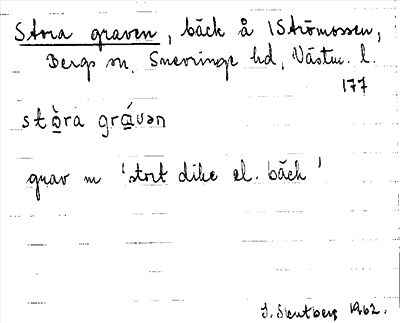 Stora graven, bäck å Strömossen,
Bergs sn. Snevringe hd, Västm. l.
177
stò̱ra grá̱vən
grav m 'stort dike el. bäck'
1962.